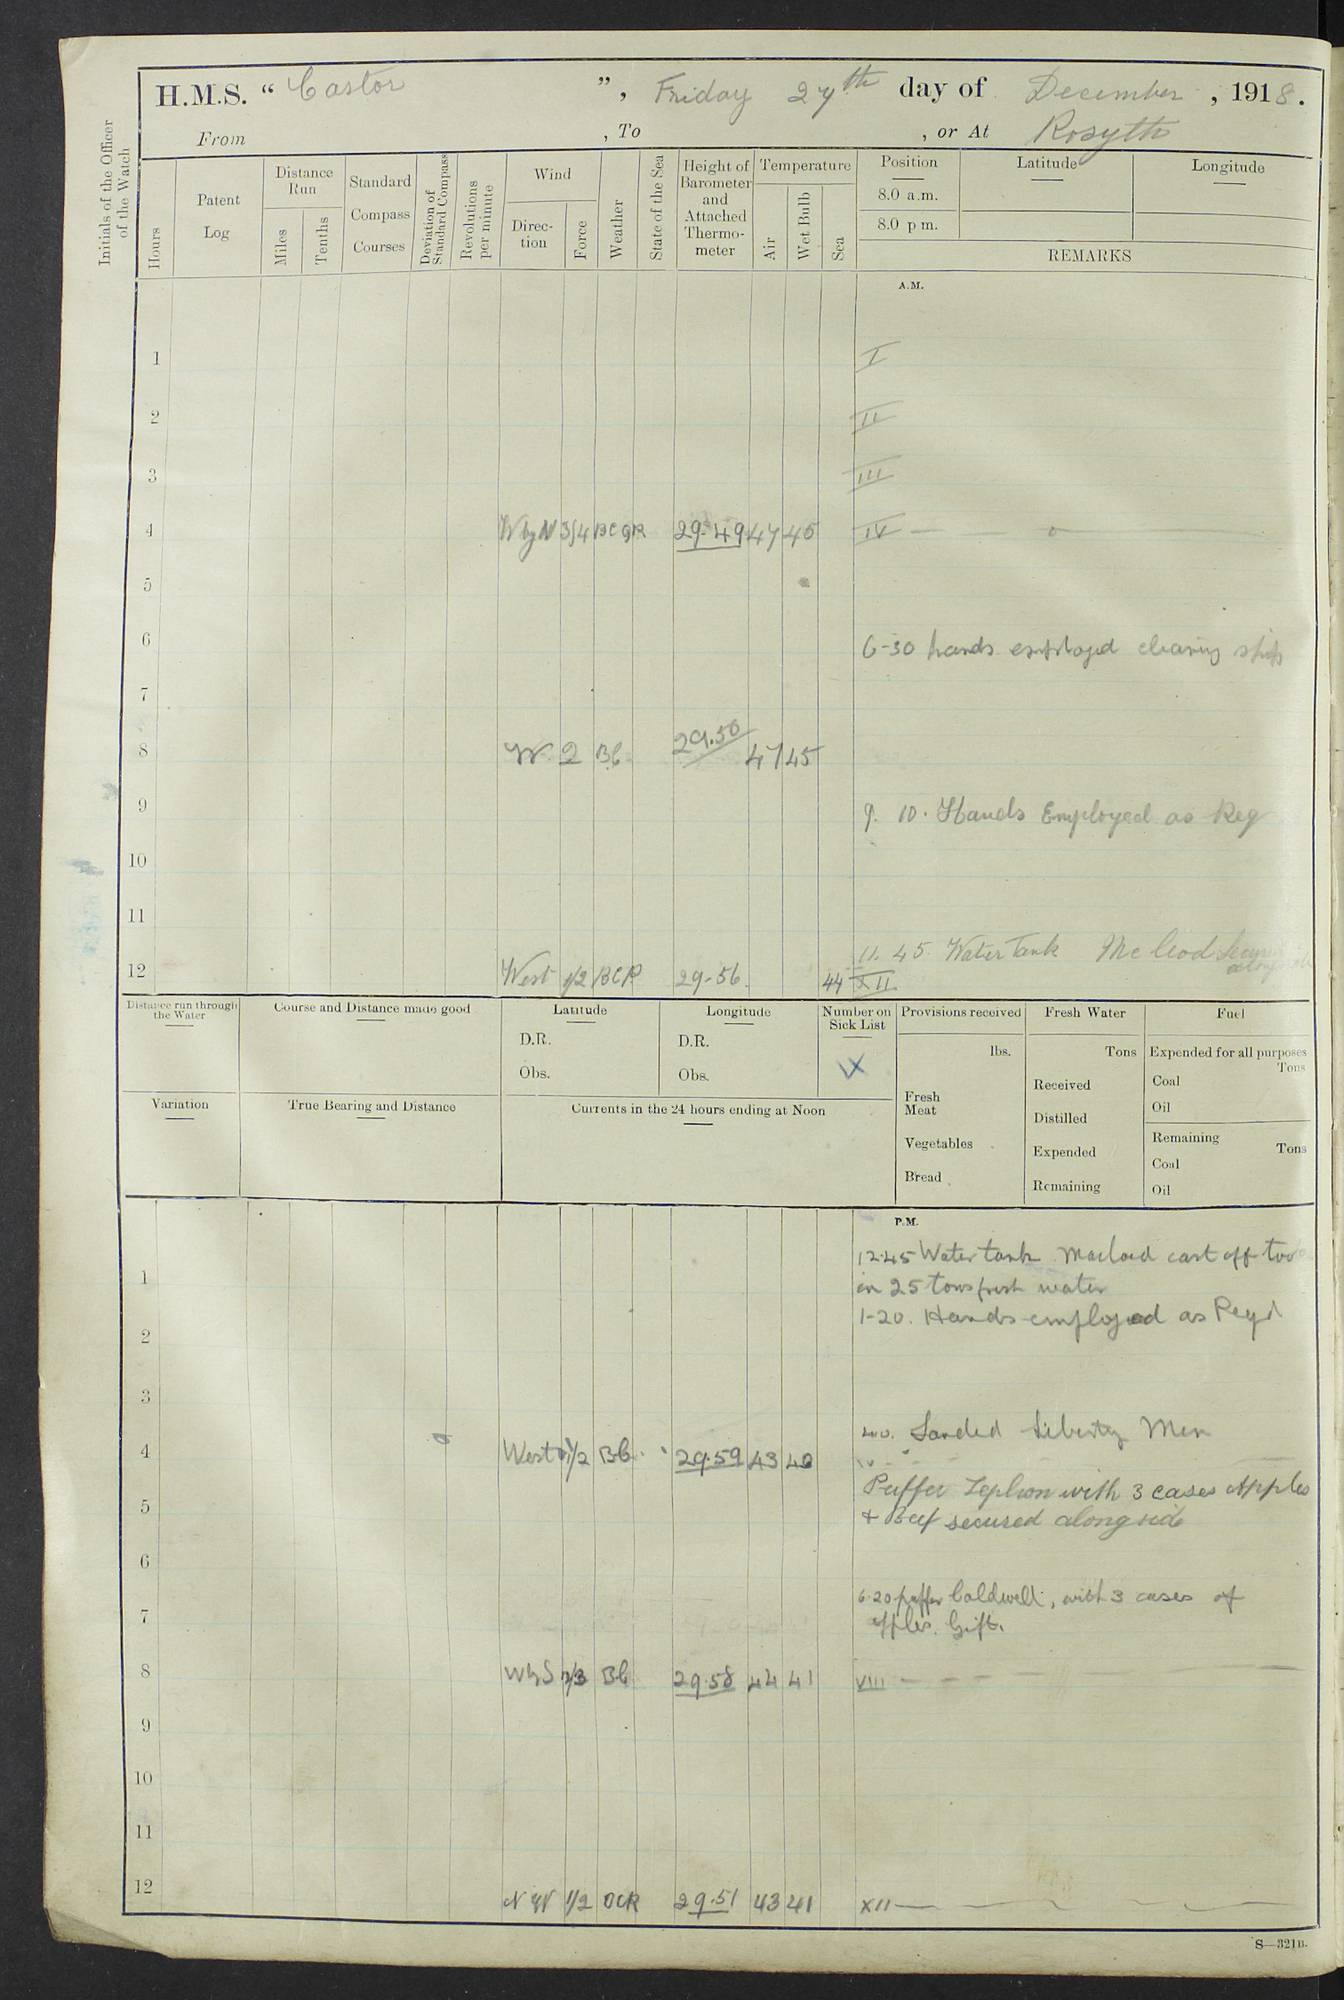 H.M.S. “ Castor ”, Friday 27th day of December, 1918.
From , To , or At Rosyth
Initials of the Officer of the Watch
Hours
Patent Log
Distance Run
Miles
Tenths
Standard Compass Courses
Deviation of Standard Compass
Revolutions per minute
Wind
Direction
Force
Weather
State of the Sea
Height of Barometer and Attached Thermometer
Temperature
Air
Wet Bulb
Sea
Position
8.0 a.m.
8.0 p m.
Latitude
Longitude
REMARKS
A.M.
1 I
2 II
3 III
4 W by N 3/4 BCQR 29.49 47 45 IV
5
6 6-30 hands employed cleaning ship
7
8 W 2 BC 29.50 47 45
9 9. 10. Hands Employed as Req
10
11
11. 45 Water Tank McLeod
12 West 1/2 BCR 29-56 44 XII
Distance run through the Water
Course and Distance made good
Latitude
D.R.
Obs.
Longitude
D.R.
Obs.
Number on Sick List
Provisions received
lbs.
Fresh Meat
Vegetables
Bread
Fresh Water
Tons
Received
Distilled
Expended
Remaining
Fuel
Expended for all purposes
Tons
Coal
Oil
Remaining
Tons
Coal
Oil
Variation
True Bearing and Distance
Currents in the 24 hours ending at Noon
P.M.
12.45 Water tank Macload cast off took
1 in 25 tons fresh water
1-20. Hands employed as Reqd
2
3
4.0. Landed Liberty Men
4 West 1/2 BC 29.59 43 40
Puffer with 3 cases Apples
5 + Beef secured alongside
6
6.20 puffer Caldwell, with 3 cases of
7 apples. Gift.
8 WbyS 2/3 BC 29.58 44 41 VIII
9
10
11
12 NW 1/2 OCR 29.51 43 41 XII
S—321B.